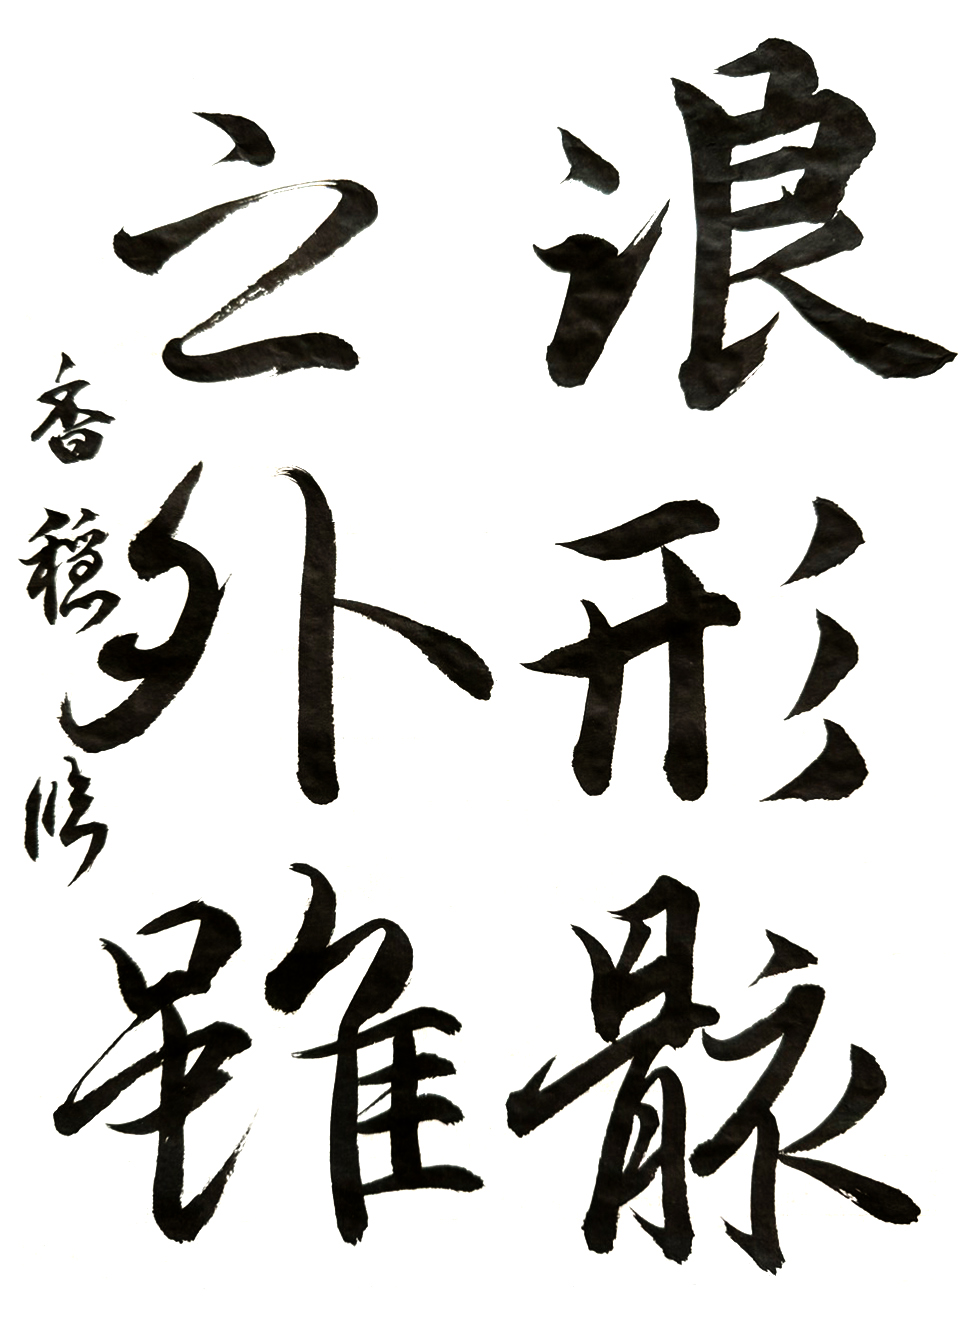 浪形骸
之外雖
香穏臨